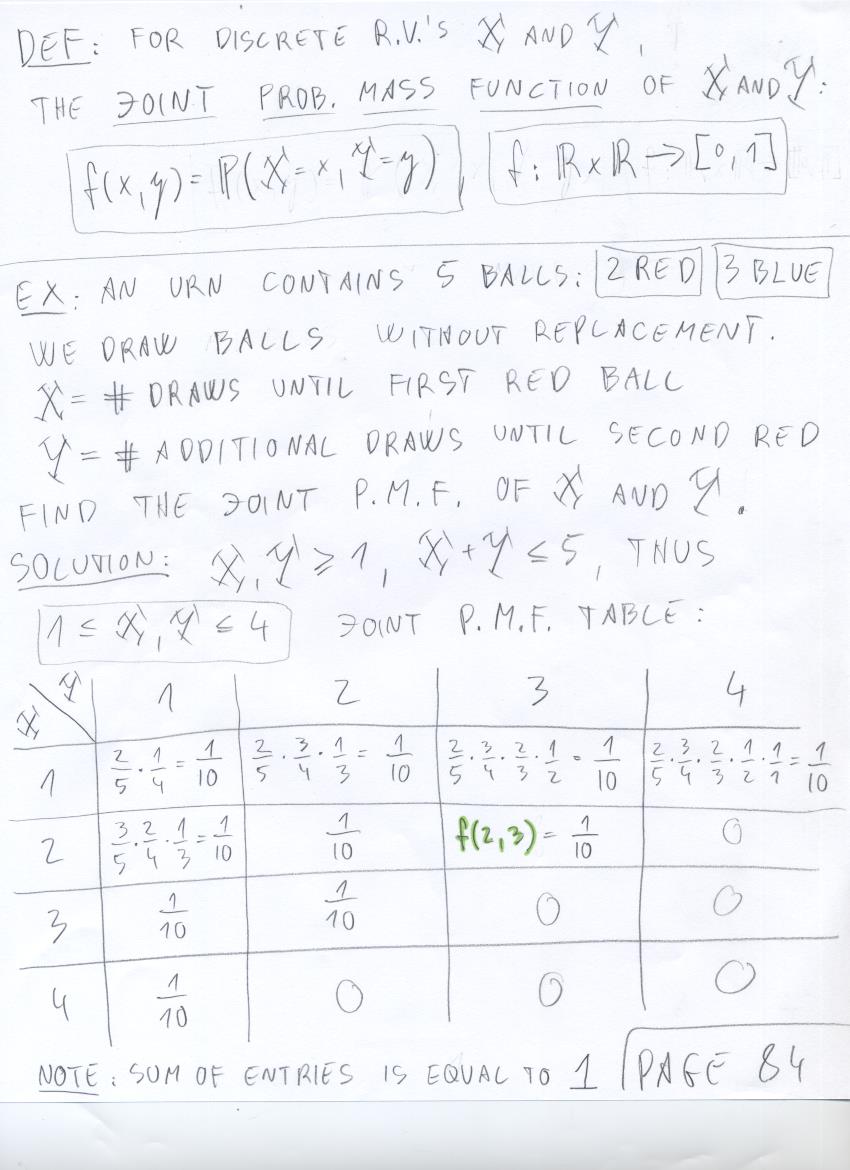 DEF: FOR DISCRETE R.V.'s X AND Y,
THE JOINT PROB. MASS FUNCTION OF X AND Y:
f(x,y) = P(X=x, Y=y), f: ℝ×ℝ → [0,1]
EX: AN URN CONTAINS 5 BALLS: 2 RED 3 BLUE
WE DRAW BALLS WITHOUT REPLACEMENT.
X = # DRAWS UNTIL FIRST RED BALL
Y = # ADDITIONAL DRAWS UNTIL SECOND RED
FIND THE JOINT P.M.F. OF X AND Y.
SOLUTION: X, Y ≥ 1, X + Y ≤ 5, THUS
1 ≤ X, Y ≤ 4 JOINT P.M.F. TABLE:
X Y 1 2 3 4
1 2/5 · 1/4 = 1/10 2/5 · 3/4 · 1/3 = 1/10 2/5 · 3/4 · 2/3 · 1/2 = 1/10 2/5 · 3/4 · 2/3 · 1/2 · 1/1 = 1/10
2 3/5 · 2/4 · 1/3 = 1/10 1/10 f(2,3) = 1/10 0
3 1/10 1/10 0 0
4 1/10 0 0 0
NOTE: SUM OF ENTRIES IS EQUAL TO 1 PAGE 84